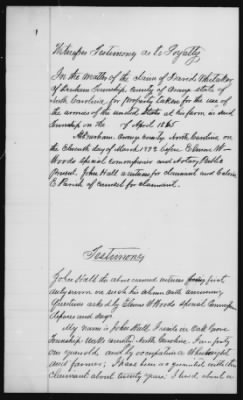 Witnesses Testimony as to Loyalty
In the matter of the Claim of David Whitaker
of Durham Township, County of Orange state of
North Carolina, for property taken for the use of
the armies of the United States at his farm in said
township on the of April 1865
At Durham, Orange County, North Carolina, on
the Eleventh day of March 1872 before Edwin W
Woods special commissioner and Notary Public
Present, John Hall witness for claimant and Calvin
E Parish of counsel for claimant.
Testimony
John Hall the above named witness being first
duly sworn on such his oath in answering
Questions asked by Edwin W Woods special Commissioner
deposes and says
My name is John Hall I reside in Oak Grove
Township Wake county North Carolina. I am forty
years old, and by occupation a Wheelwright
and farmer; I have been acquainted with the
claimant about twenty years. I lived about a